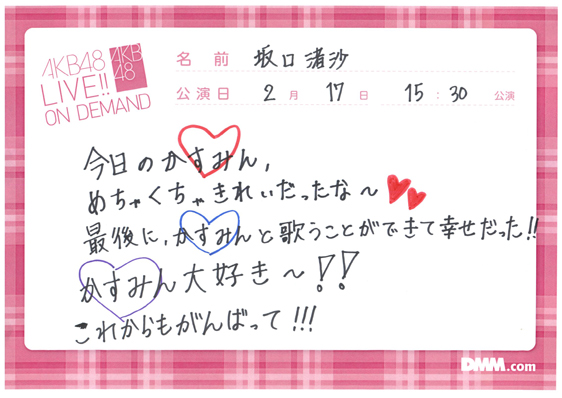 AKB48
LIVE!!
ON DEMAND
AKB
48
名前 坂口渚沙
公演日 2月17日 15:30公演
今日のかすみん,
めちゃくちゃきれいだったな〜
最後に,かすみんと歌うことができて幸せだった!!
かすみん大好き〜!!
これからもがんばって!!!
DMM.com